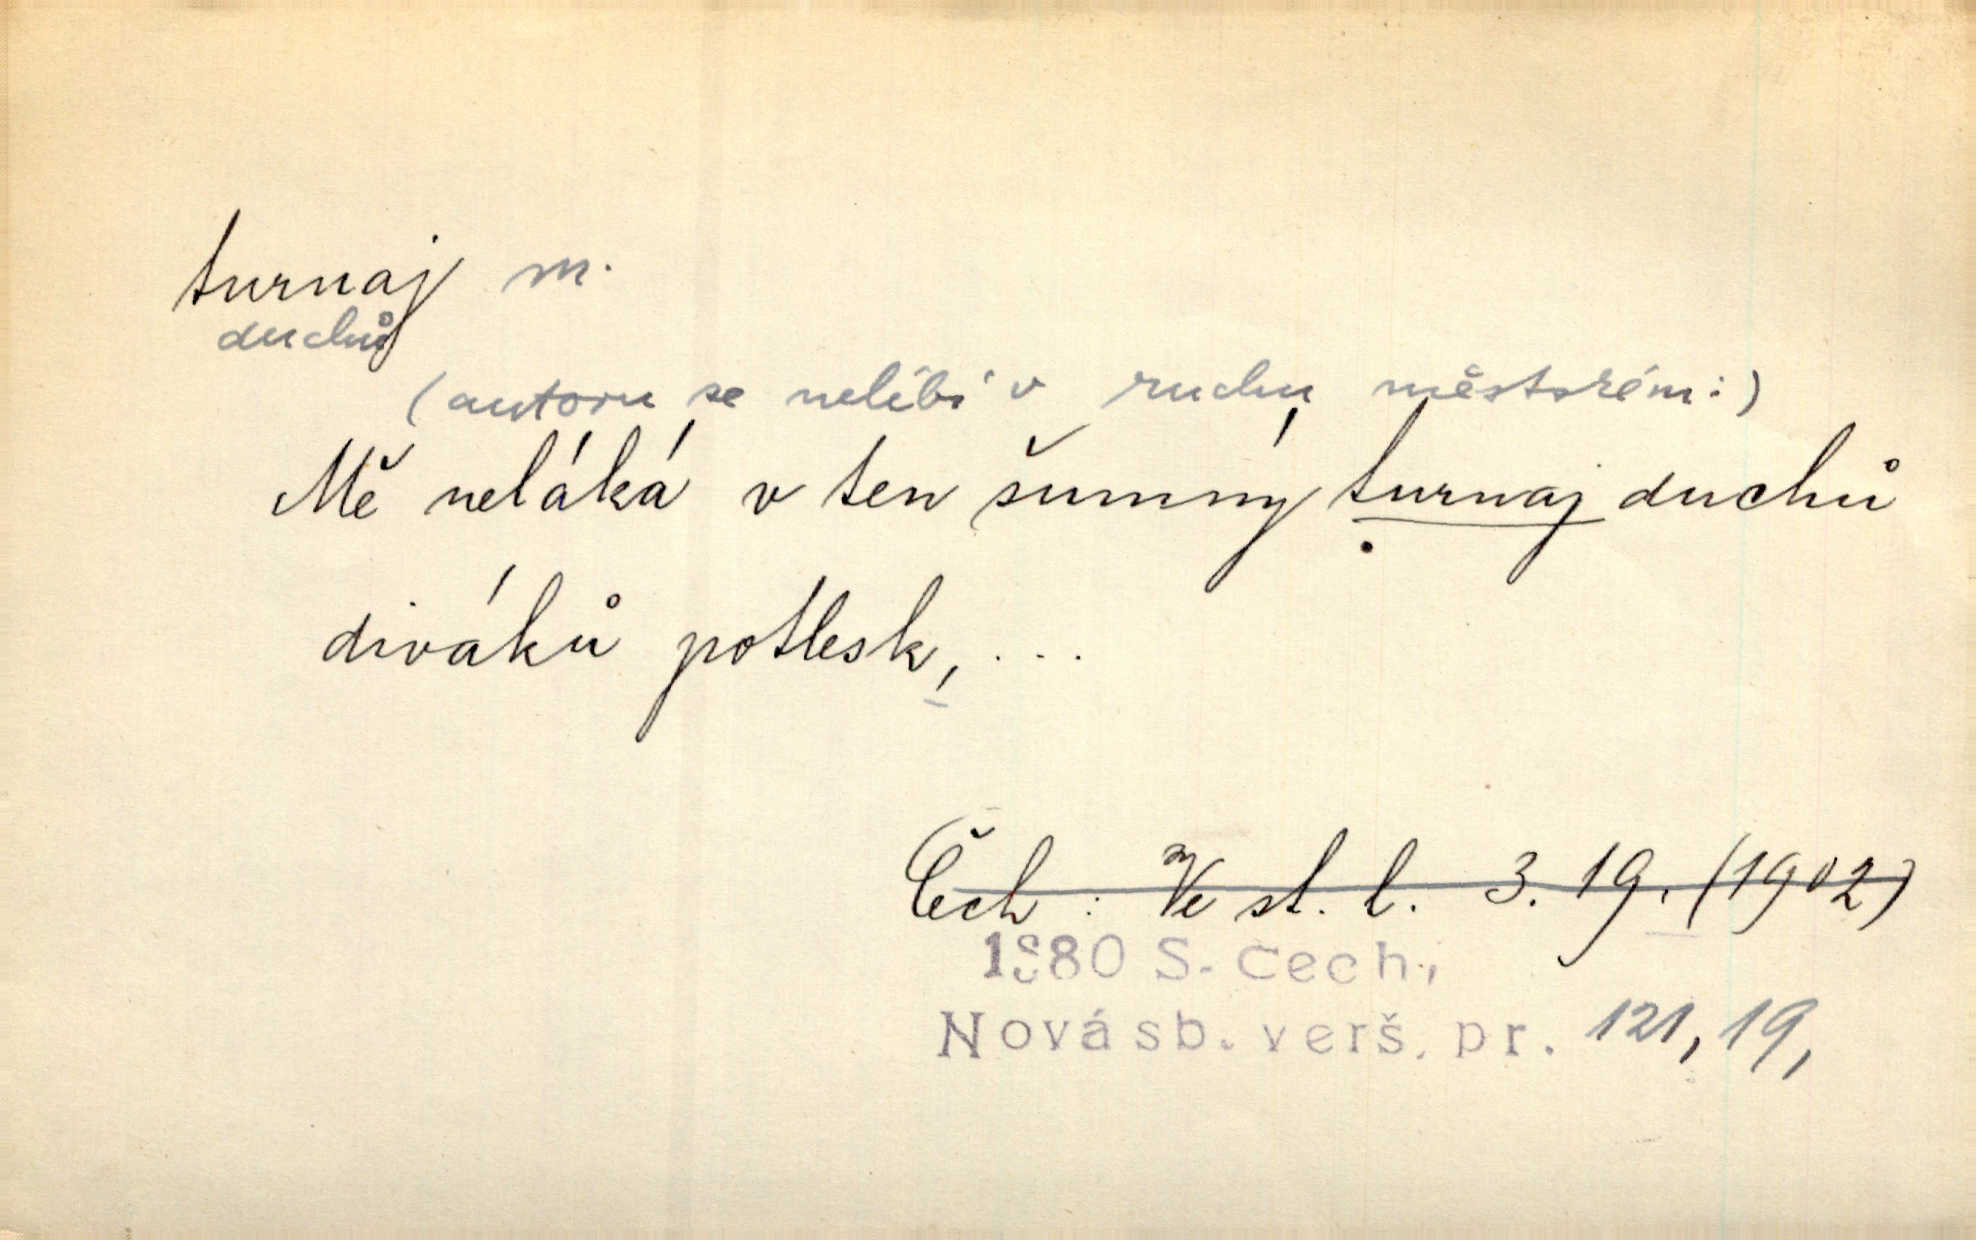 turnaj m.
duchů
(autoru se nelíbí v ruchu městském:)
Mě neláká v ten šumný turnaj duchů
diváků potlesk, ...
Čech: Ve st. l. 3. 19. (1902)
1880 S. Čech,
Nová sb. verš. pr. 121, 19,